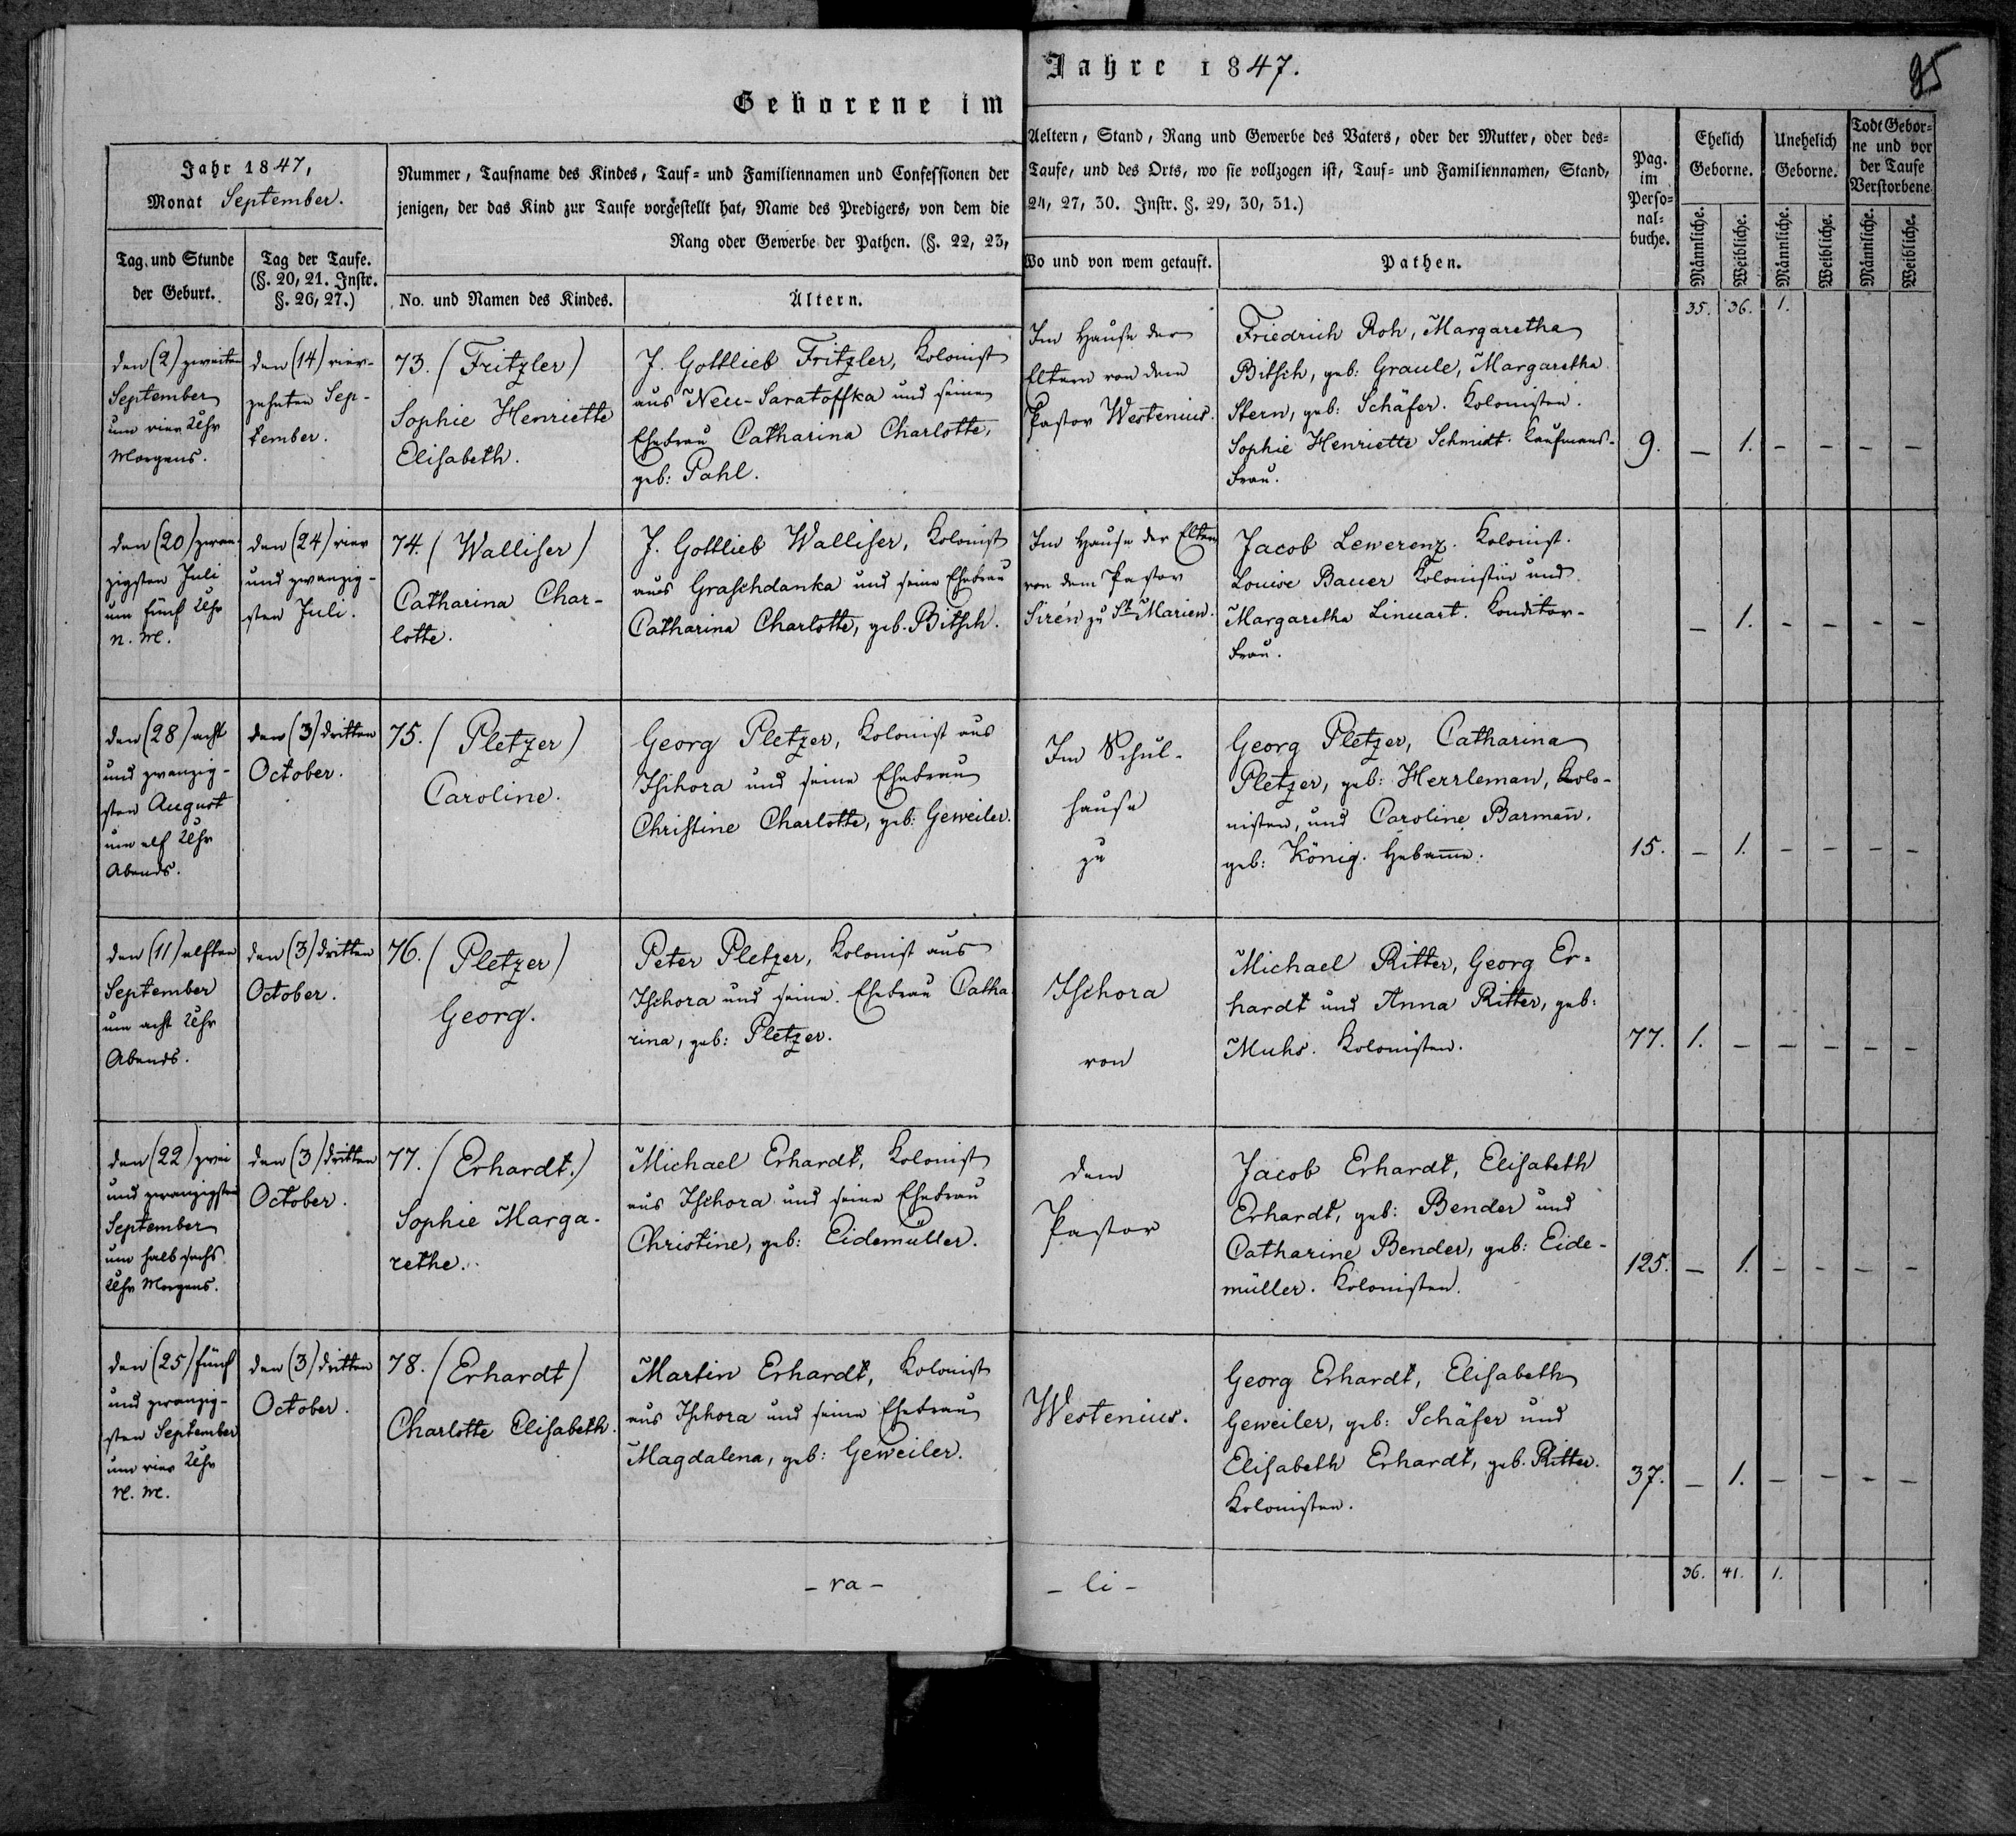 Geborene im
Jahre 1847.
95
Jahr 1847,
Monat September.
Nummer, Taufname des Kindes, Tauf- und Familiennamen und Confessionen der
jenigen, der das Kind zur Taufe vorgestellt hat, Name des Predigers, von dem die
Rang oder Gewerbe der Pathen. (§. 22, 23,
Tag und Stunde
der Geburt.
Tag der Taufe.
(§. 20, 21. Instr.
§. 26, 27.)
No. und Namen des Kindes.
Ältern.
Aeltern, Stand, Rang und Gewerbe des Vaters, oder der Mutter, oder des-
Taufe, und des Orts, wo sie vollzogen ist, Tauf- und Familiennamen, Stand,
24, 27, 30. Instr. §. 29, 30, 31.)
Wo und von wem getauft.
Pathen.
Pag.
im
Perso-
nal-
buche.
Ehelich
Geborne.
Unehelich
Geborne.
Todt Gebor-
ne und vor
der Taufe
Verstorbene
Männliche.
Weibliche.
Männliche.
Weibliche.
Männliche.
Weibliche.
35. 36. 1.
den (2) zweiten
September
um vier Uhr
Morgens.
den (14) vier-
zehnten Sep-
tember.
73. (Fritzler)
Sophie Henriette
Elisabeth.
J. Gottlieb Fritzler, Kolonist
aus Neu-Saratoffka und seine
Ehefrau Catharina Charlotte,
geb: Pahl.
Im Hause der
Eltern von dem
Pastor Westenius.
Friedrich Roh, Margaretha
Bitsch, geb: Graule, Margaretha
Stern, geb: Schäfer. Kolonisten.
Sophie Henriette Schmidt. Kaufmans-
frau.
9. – 1. – – – –
den (20) zwan-
zigsten Juli
um fünf Uhr
N. M.
den (24) vier
und zwanzig-
sten Juli.
74. (Walliser)
Catharina Char-
lotte.
J. Gottlieb Walliser, Kolonist
aus Graschdanka und seine Ehefrau
Catharina Charlotte, geb. Bitsch.
Im Hause der Eltern
von dem Pastor
Sirén zu St Marien.
Jacob Lewerenz. Kolonist.
Louise Bauer Kolonistin und
Margaretha Linuart. Konditor-
frau.
– 1. – – – –
den (28) acht
und zwanzig-
sten August
um elf Uhr
Abends.
den (3) dritten
October.
75. (Pletzer)
Caroline.
Georg Pletzer, Kolonist aus
Ischora und seine Ehefrau
Christine Charlotte, geb: Geweiler.
Im Schul-
hause
zu
Georg Pletzer, Catharina
Pletzer, geb: Herrleman, Kolo-
nisten, und Caroline Barman̄.
geb: König. Hebam̄e.
15. – 1. – – – –
den (11) elften
September
um acht Uhr
Abends.
den (3) dritten
October.
76. (Pletzer)
Georg.
Peter Pletzer, Kolonist aus
Ischora und seine Ehefrau Catha
rina, geb: Pletzer.
Ischora
von
Michael Ritter, Georg Er-
hardt und Anna Ritter, geb:
Muhs. Kolonisten.
77. 1. – – – – –
den (22) zwei
und zwanzigsten
September
um halb sechs
Uhr Morgens.
den (3) dritten
October.
77. (Erhardt.)
Sophie Marga-
rethe.
Michael Erhardt, Kolonist
aus Ischora und seine Ehefrau
Christine, geb: Eidemüller.
dem
Pastor
Jacob Erhardt, Elisabeth
Erhardt, geb: Bender und
Catharine Bender, geb: Eide-
müller. Kolonisten.
125. – 1. – – – –
den (25) fünf
und zwanzig-
sten September
um vier Uhr
N. M.
den (3) dritten
October.
78. (Erhardt)
Charlotte Elisabeth.
Martin Erhardt, Kolonist
aus Ischora und seine Ehefrau
Magdalena, geb: Geweiler.
Westenius.
Georg Erhardt, Elisabeth
Geweiler, geb: Schäfer und
Elisabeth Erhardt, geb. Ritter.
Kolonisten.
37. – 1. – – – –
– ra –
– li –
36. 41. 1.